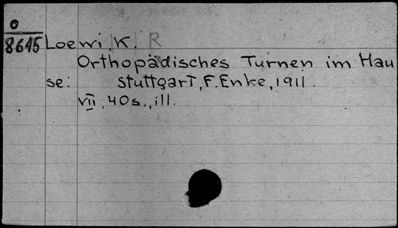 O
8615 Loewi, K. R
Orthopädisches Turnen im Hau
se: Stuttgart, F. Enke, 1911.
VII, 40 s., ill.